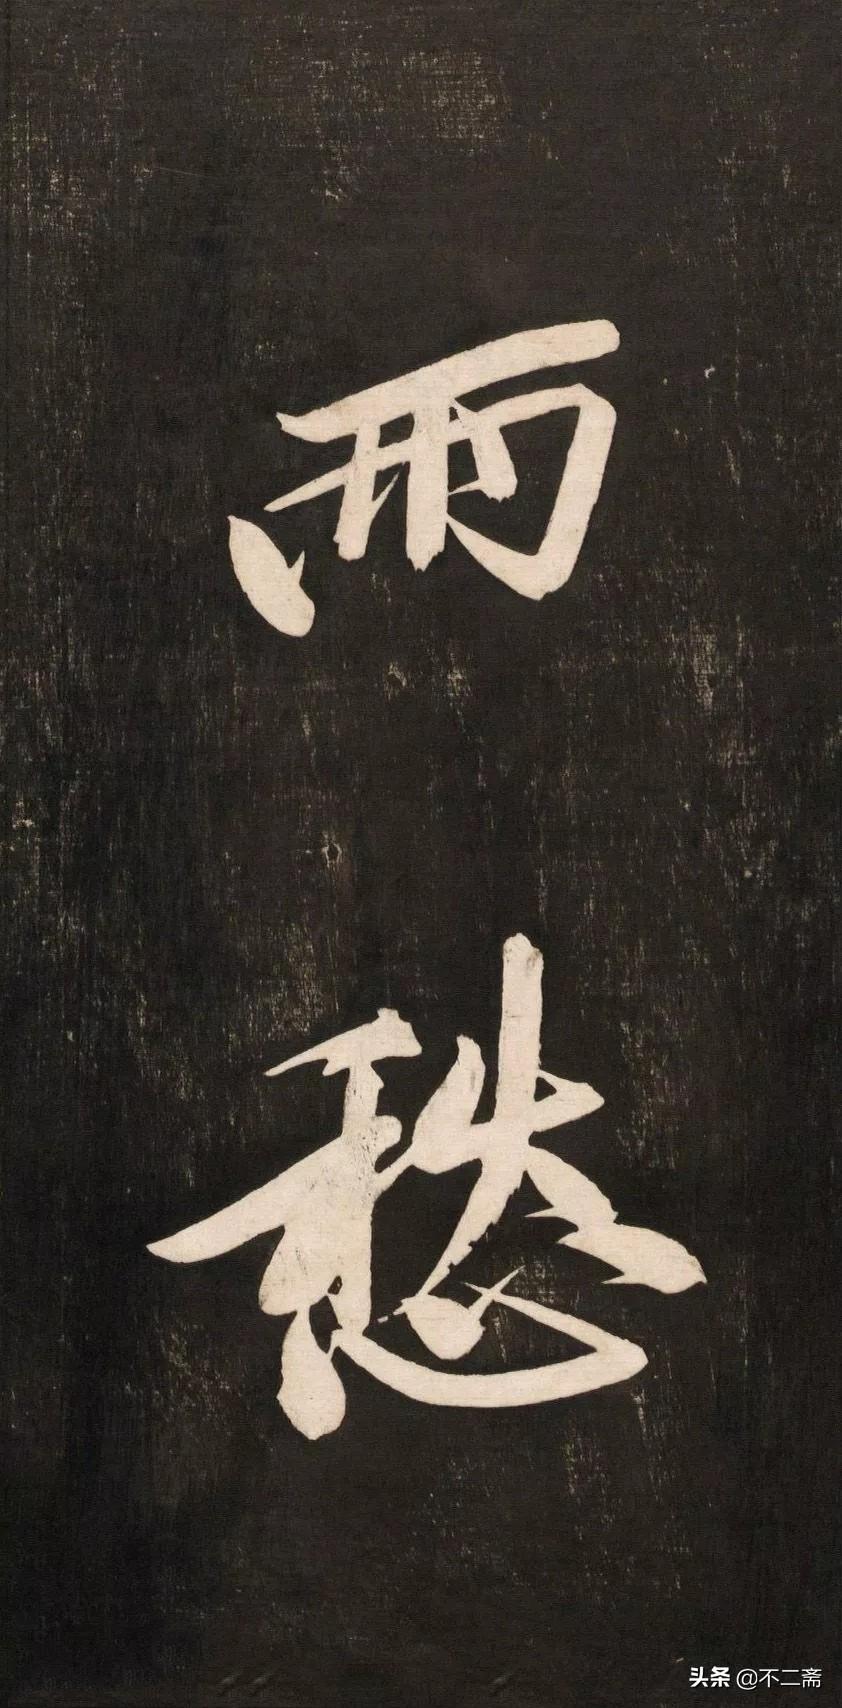 雨愁
头条 @不二斋